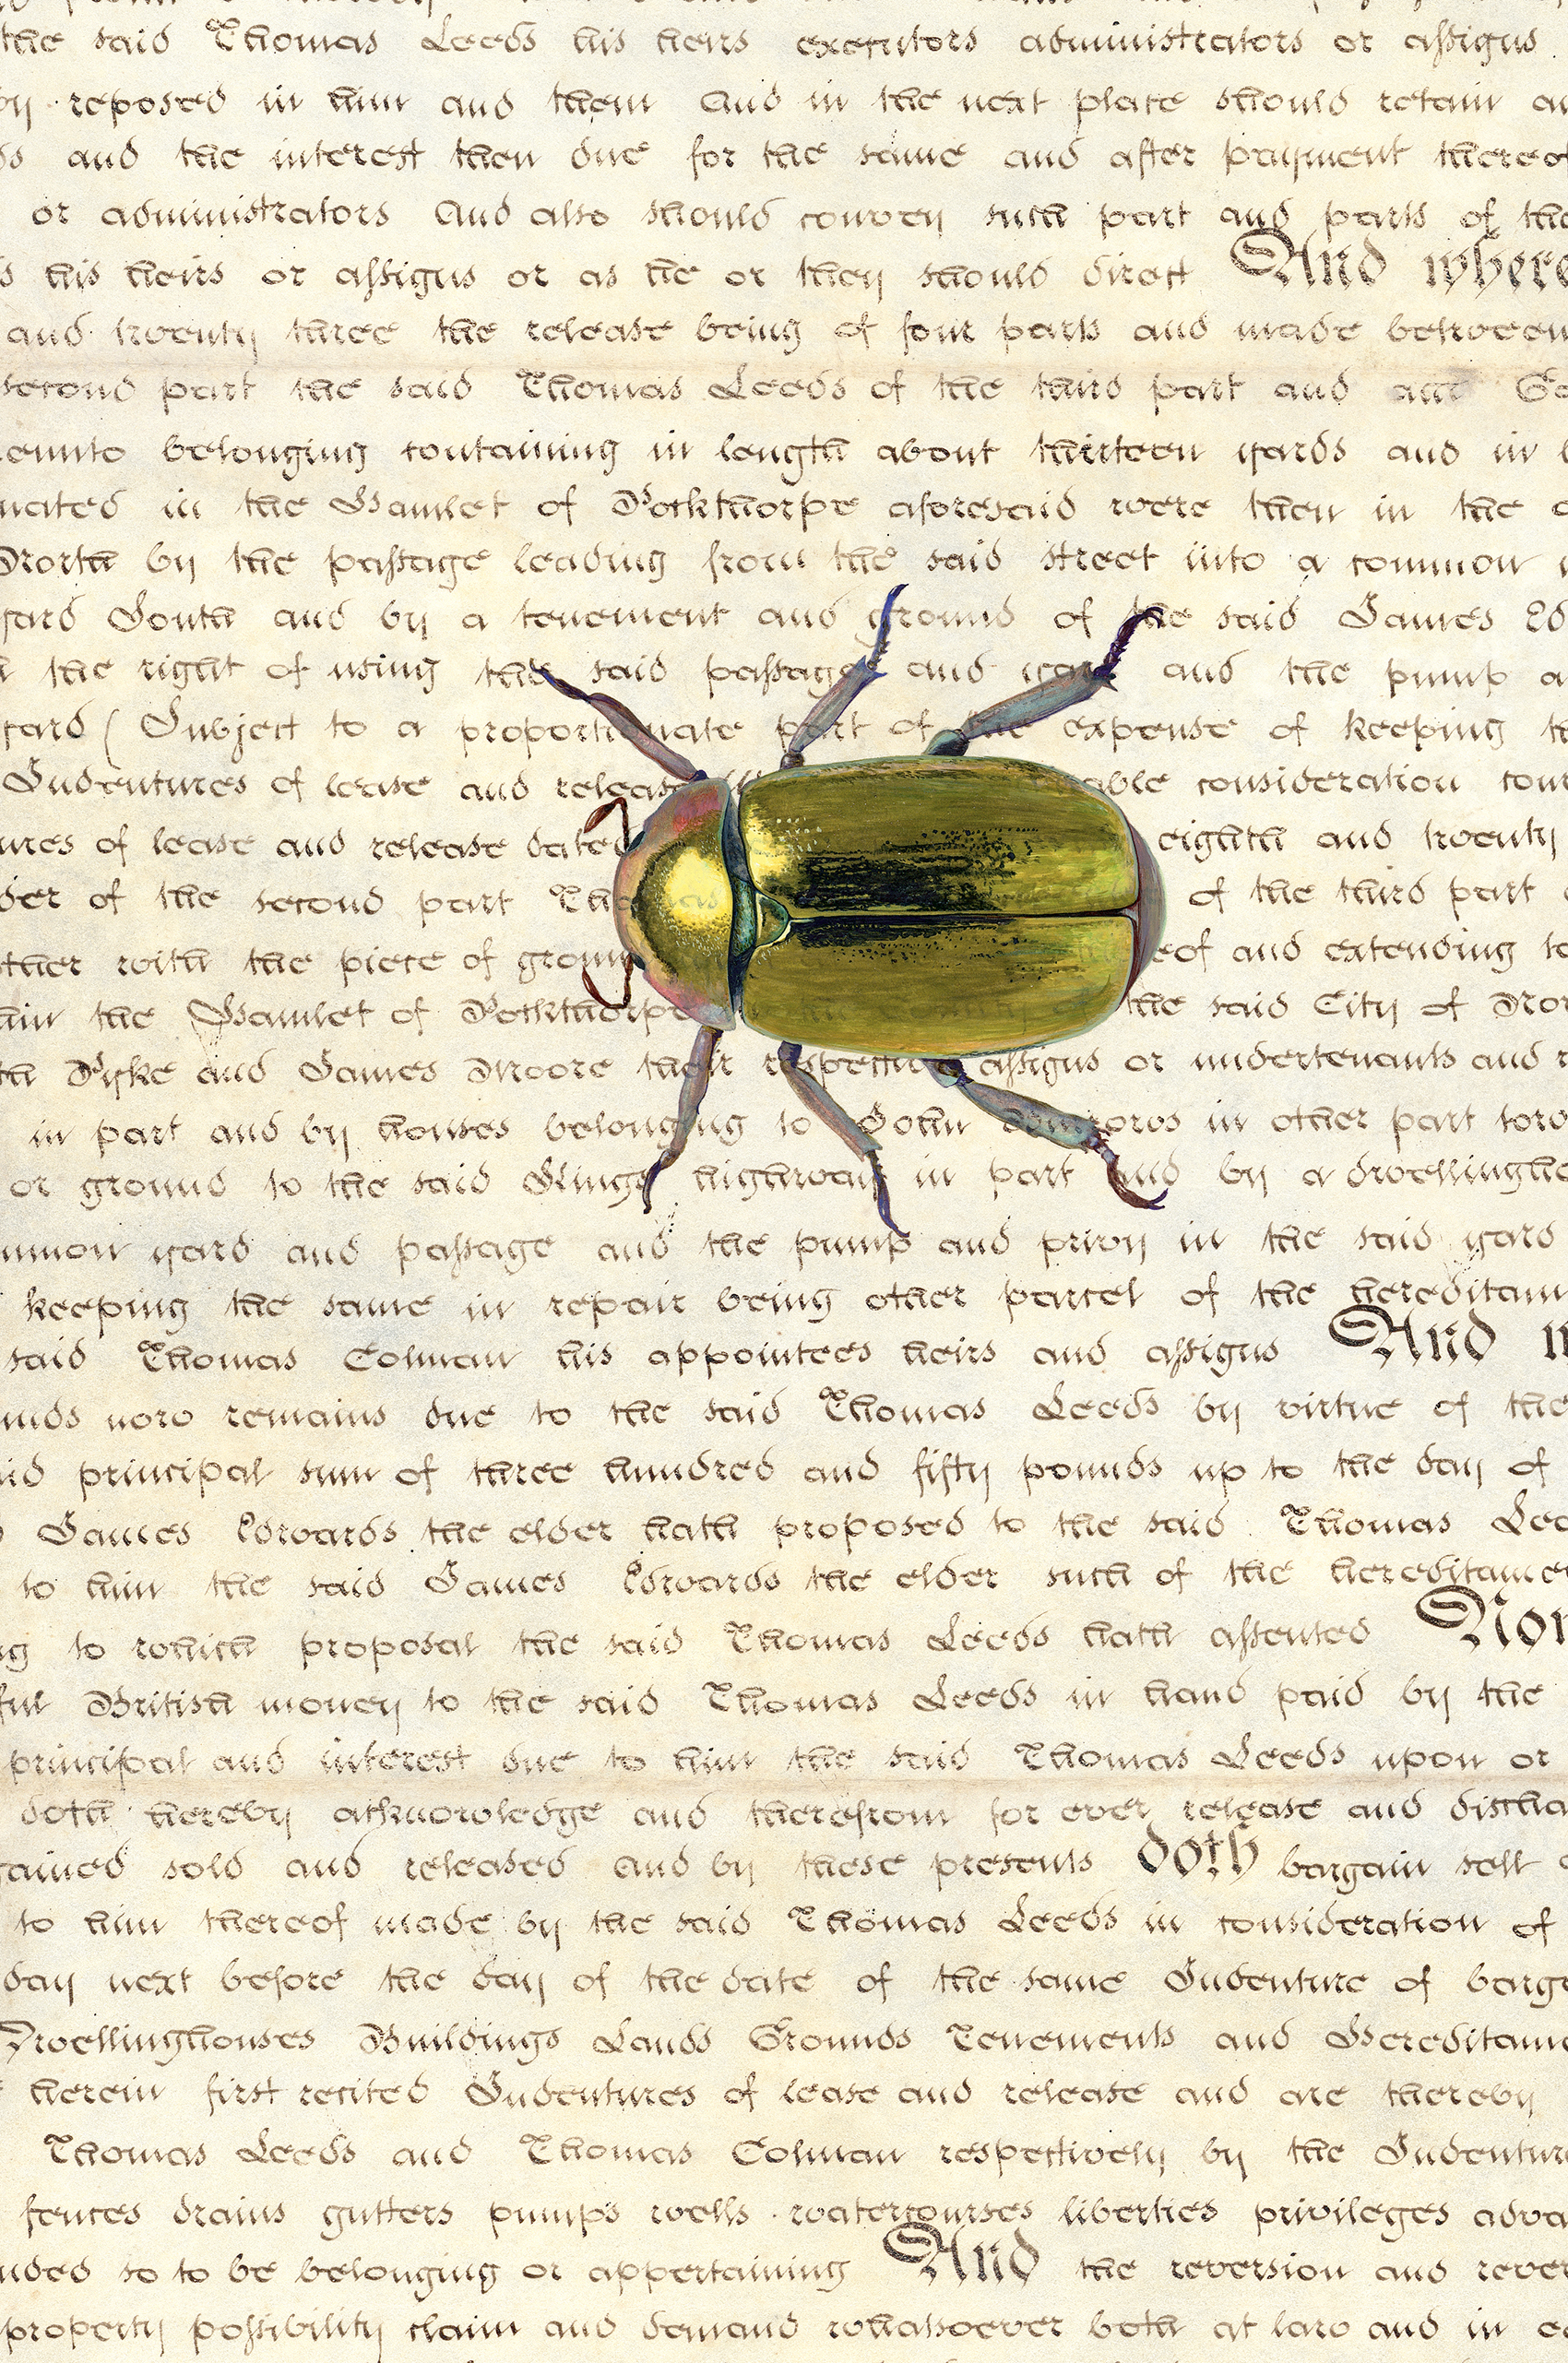 the said Thomas Leeds his heirs executors administrators or assigns
by reposed in him and them And in the next place should retain
and the interest then due for the same and after payment thereof
or administrators And also should convey such part and parts of the
his heirs or assigns or as he or they should direct And where
and twenty three the release being of four parts and made between
second part the said Thomas Leeds of the third part and
belonging containing in length about thirteen yards and in
in the Hamlet of Pockthorpe aforesaid were then in the
North by the passage leading from the said street into a common
yard South and by a tenement and ground of the said James
the right of using the said passage and and the pump
yard (Subject to a proportionate part of the expense of keeping
Indentures of lease and release consideration
of lease and release dated eighth and twenty
of the second part of the third part
with the piece of and extending
the Hamlet of Pockthorpe the said City of
Pyke and James Moore their respective assigns or undertenants and
in part and by houses belonging to John in other part
or ground to the said Kings highway in part and by a
yard and passage and the pump and privy in the said yard
keeping the same in repair being other parcel of the
said Thomas Colman his appointees heirs and assigns And
now remains due to the said Thomas Leeds by virtue of the
principal sum of three hundred and fifty pounds up to the day of
James Edwards the elder hath proposed to the said Thomas
to him the said James Edwards the elder such of the
to which proposal the said Thomas Leeds hath assented
British money to the said Thomas Leeds in hand paid by the
principal and interest due to him the said Thomas Leeds upon or
doth hereby acknowledge and therefrom for ever release and
sold and released and by these presents doth bargain sell
to him thereof made by the said Thomas Leeds in consideration of
day next before the day of the date of the same Indenture of
Dwellinghouses Buildings Lands Grounds Tenements and
herein first recited Indentures of lease and release and are thereby
Thomas Leeds and Thomas Colman respectively by the
fences drains gutters pumps wells watercourses liberties privileges
so to be belonging or appertaining And the reversion and
property possibility claim and demand whatsoever both at law and in